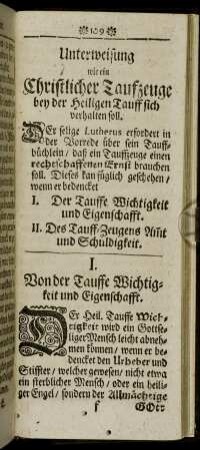 109
Unterweisung
wie ein
Christlicher Taufzeuge
bey der Heiligen Tauff sich
verhalten soll.
DEr selige Lutherus erfordert in
der Vorrede über sein Tauff-
büchlein / daß ein Tauffzeuge einen
rechtschaffenen Ernst brauchen
soll. Dieses kan füglich geschehen /
wenn er bedencket
I. Der Tauffe Wichtigkeit
und Eigenschafft.
II. Des Tauff-Zeugens Amt
und Schuldigkeit.
I.
Von der Tauffe Wichtig-
keit und Eigenschafft.
DEr Heil. Tauffe Wich-
tigkeit wird ein Gottse-
liger Mensch leicht abneh-
men können / wenn er be-
dencket den Urheber und
Stiffter / welcher gewesen / nicht etwa
ein sterblicher Mensch / oder ein heili-
ger Engel / sondern der Allmächtige
f GOtt